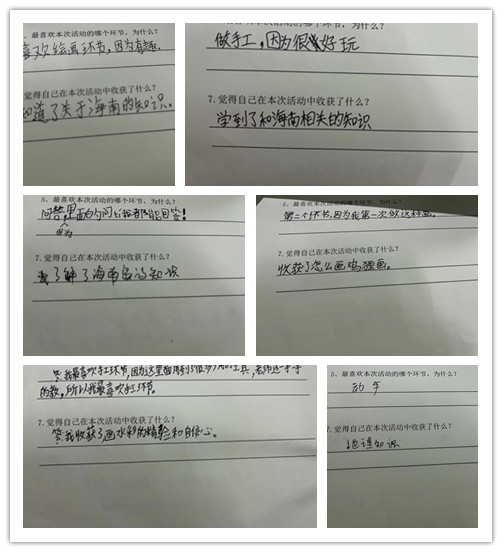 最喜欢本次活动的哪个环节,为什么?
喜欢绘画环节,因为有趣。
觉得自己在本次活动中收获了什么?
知道了关于海南的知识。
做手工,因为很好玩
7.觉得自己在本次活动中收获了什么?
学到了和海南相关的知识
5、最喜欢本次活动的哪个环节,为什么?
问答,里面的问题我都能回答!
因为
7.觉得自己在本次活动中收获了什么?
我了解了海南岛的知识
5、最喜欢本次活动的哪个环节,为什么?
第二个环节,因为我第一次做这种画。
7.觉得自己在本次活动中收获了什么?
收获了怎么画鸡狸画。
答:我最喜欢手工环节,因为这里面用到了很多工具,老师还手
的教,所以我最喜欢手工环节。
7.觉得自己在本次活动中收获了什么?
答:我收获了画水彩的精彩和自信心。
5、最喜欢本次活动的哪个环节,为什么?
7.觉得自己在本次活动中收获了什么?
地理知识